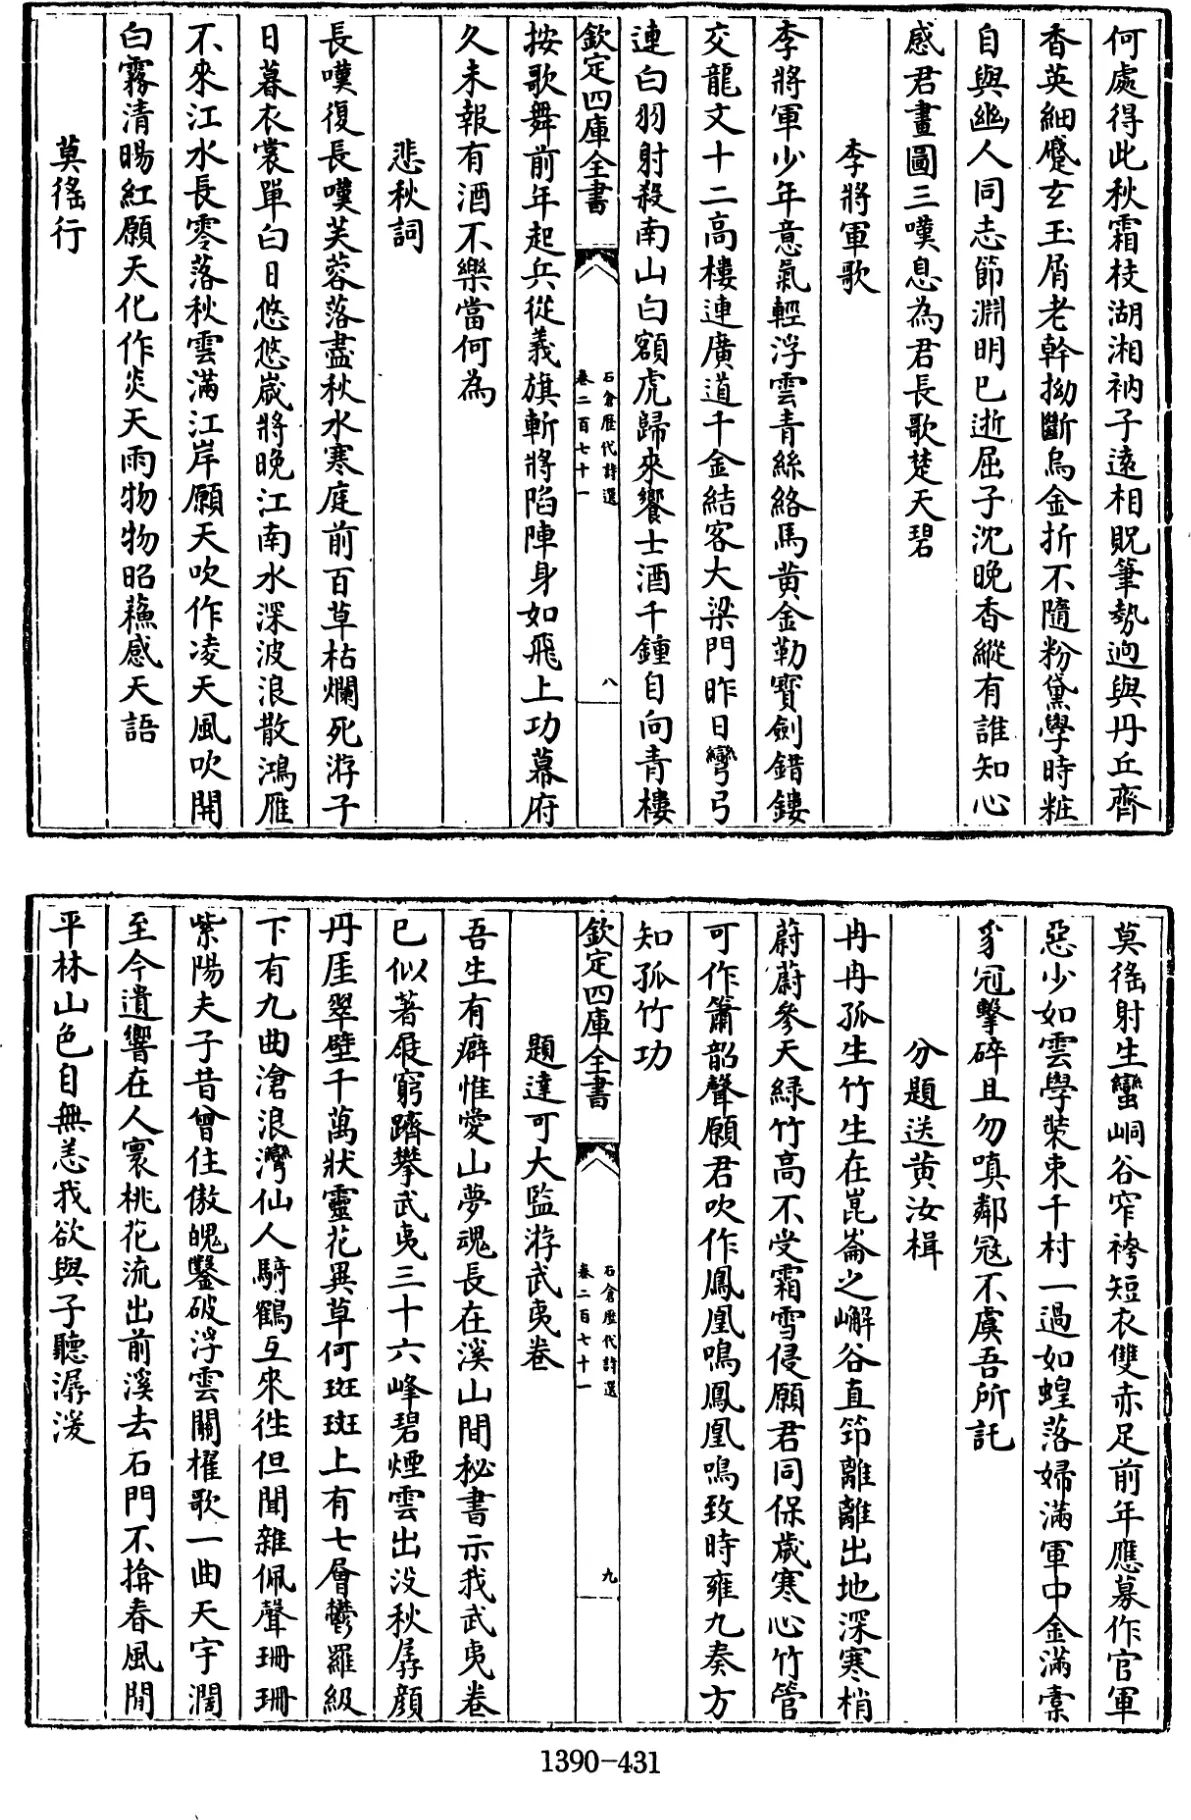 何處得此秋霜枝湖湘衲子遠相貺筆勢逈與丹丘齊
香英細蹙玄玉屑老幹拗斷烏金折不隨粉黛學時粧
自與幽人同志節淵明已逝屈子沈晚香縱有誰知心
感君畫圖三嘆息為君長歌楚天碧
李將軍歌
李將軍少年意氣輕浮雲青絲絡馬黄金勒寶劍錯鏤
交龍文十二高樓連廣道千金結客大梁門昨日彎弓
連白羽射殺南山白額虎歸來饗士酒千鍾自向青樓
欽定四庫全書
石倉歷代詩選
卷二百七十一
八
按歌舞前年起兵從義旗斬將陷陣身如飛上功幕府
久未報有酒不樂當何為
悲秋詞
長嘆復長嘆芙蓉落盡秋水寒庭前百草枯爛死游子
日暮衣裳單白日悠悠歲將晚江南水深波浪散鴻雁
不來江水長零落秋雲滿江岸願天吹作凌天風吹開
白霧清暘紅願天化作炎天雨物物昭蘓感天語
莫徭行
莫徭射生蠻峒谷窄袴短衣雙赤足前年應募作官軍
惡少如雲學裝束千村一過如蝗落婦滿軍中金滿橐
豸冠擊碎且勿嗔鄰冦不虞吾所託
分題送黄汝楫
冉冉孤生竹生在崑崙之嶰谷直節離離出地深寒梢
蔚蔚參天緑竹高不受霜雪侵願君同保歲寒心竹管
可作簫韶聲願君吹作鳳凰鳴鳳凰鳴致時雍九奏方
知孤竹功
欽定四庫全書
石倉歷代詩選
卷二百七十一
九
題達可大監游武夷卷
吾生有癖惟愛山夢魂長在溪山間秘書示我武夷卷
已似著屐窮躋攀武夷三十六峰碧煙雲出没秋孱顔
丹厓翠壁千萬狀靈花異草何斑斑上有七層鬱羅級
下有九曲滄浪灣仙人騎鶴互來徃但聞雜佩聲珊珊
紫陽夫子昔曾住傲睨鑿破浮雲關櫂歌一曲天宇濶
至今遺響在人寰桃花流出前溪去石門不揜春風閒
平林山色自無恙我欲與子聽潺湲
1390-431